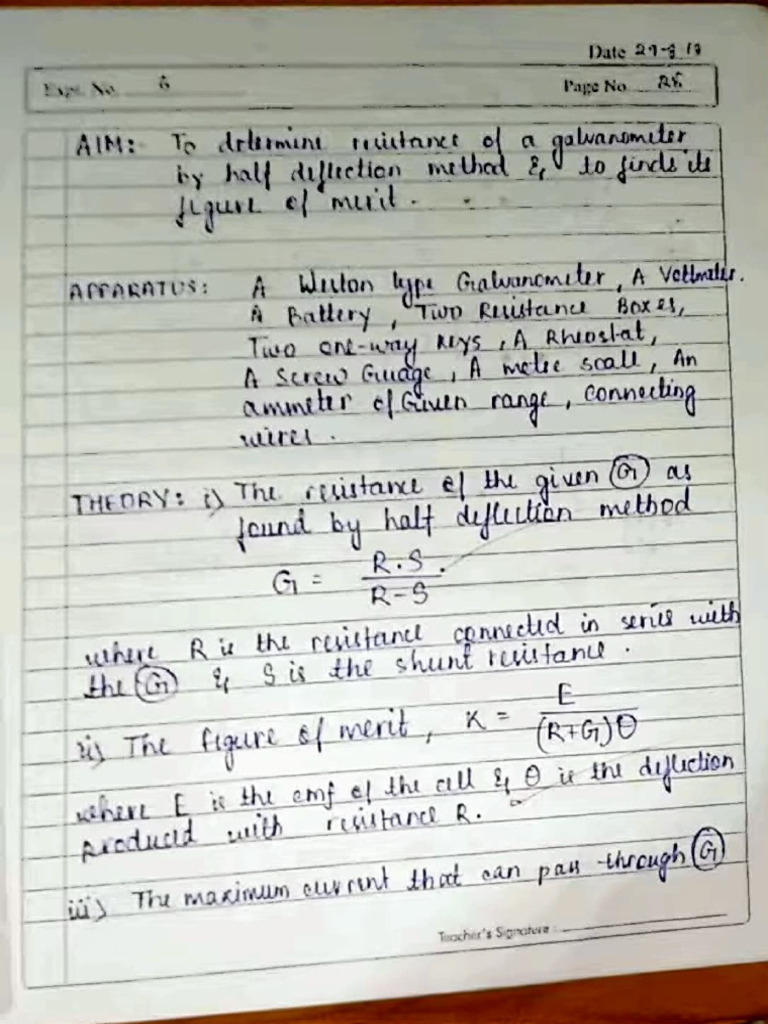 Date 29-8-19
Expt. No. 6
Page No. 25
AIM:- To determine resistance of a galvanometer
by half deflection method & to finds its
figure of merit.
APPARATUS: A Weston type Galvanometer, A Voltmeter.
A Battery, Two Resistance Boxes,
Two one-way keys, A Rheostat,
A Screw Guage, A metre scale, An
ammeter of Given range, connecting
wires.
THEORY: i) The resistance of the given (G) as
found by half deflection method
G = R.S.
R-S
where R is the resistance connected in series with
the (G) & S is the shunt resistance.
ii) The figure of merit, K = E
(R+G)θ
where E is the emf of the cell & θ is the deflection
produced with resistance R.
iii) The maximum current that can pass through (G)
Teacher's Signature